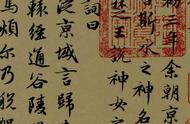 初三年余朝京
斯水之神名
王說神女之
詞曰
從京域言歸
轅經通谷陵
馬煩爾乃稅駕